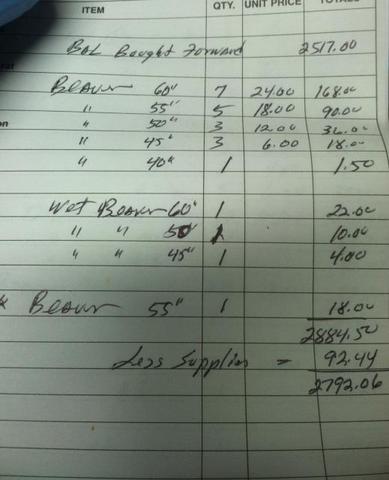 ITEM QTY. UNIT PRICE
Bal Bought Forward 2517.00
Beaver 60" 7 24.00 168.00
" 55" 5 18.00 90.00
" 50" 3 12.00 36.00
" 45" 3 6.00 18.00
" 40" 1 1.50
Wet Beaver 60" 1 22.00
" " 50" 1 10.00
" " 45" 1 4.00
Beaver 55" 1 18.00
2884.50
Less Supplies = 92.44
2792.06